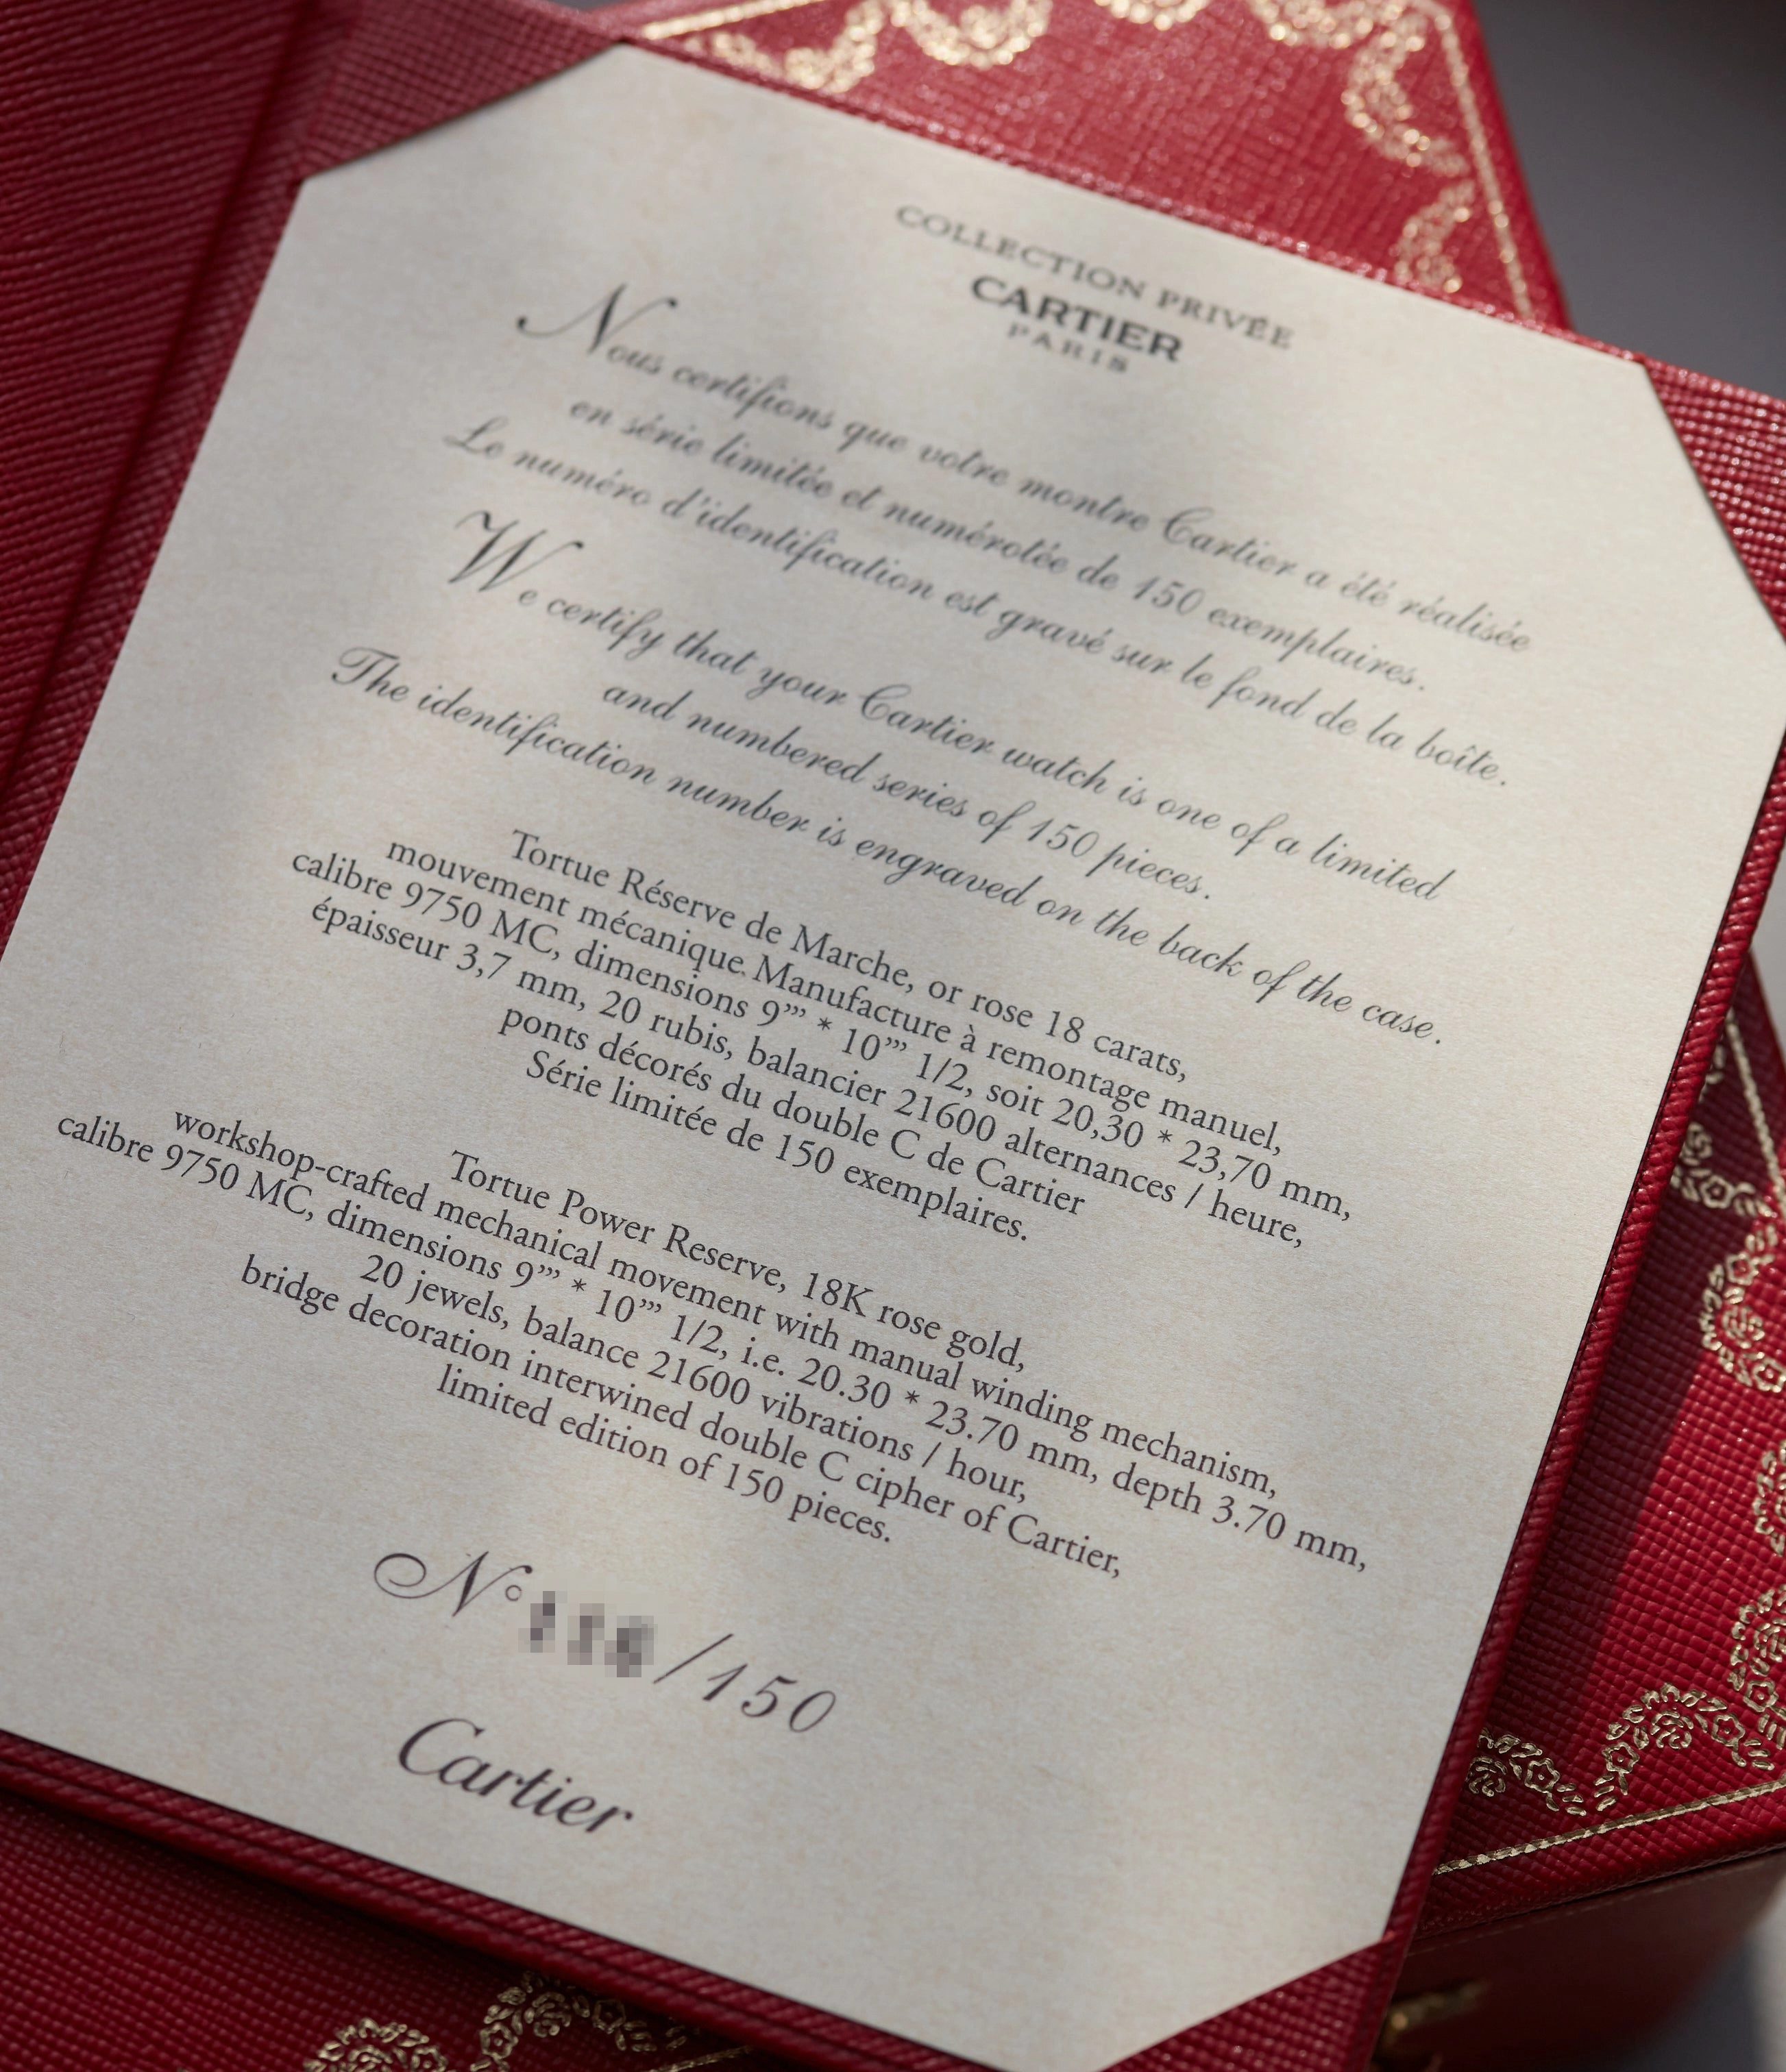 COLLECTION PRIVÉE
CARTIER
PARIS
Nous certifions que votre montre Cartier a été réalisée
en série limitée et numérotée de 150 exemplaires.
Le numéro d'identification est gravé sur le fond de la boîte.
We certify that your Cartier watch is one of a limited
and numbered series of 150 pieces.
The identification number is engraved on the back of the case.
Tortue Réserve de Marche, or rose 18 carats,
mouvement mécanique Manufacture à remontage manuel,
calibre 9750 MC, dimensions 9''' * 10''' 1/2, soit 20,30 * 23,70 mm,
épaisseur 3,7 mm, 20 rubis, balancier 21600 alternances / heure,
ponts décorés du double C de Cartier
Série limitée de 150 exemplaires.
Tortue Power Reserve, 18K rose gold,
workshop-crafted mechanical movement with manual winding mechanism,
calibre 9750 MC, dimensions 9''' * 10''' 1/2, i.e. 20.30 * 23.70 mm, depth 3.70 mm,
20 jewels, balance 21600 vibrations / hour,
bridge decoration interwined double C cipher of Cartier,
limited edition of 150 pieces.
N° /150
Cartier